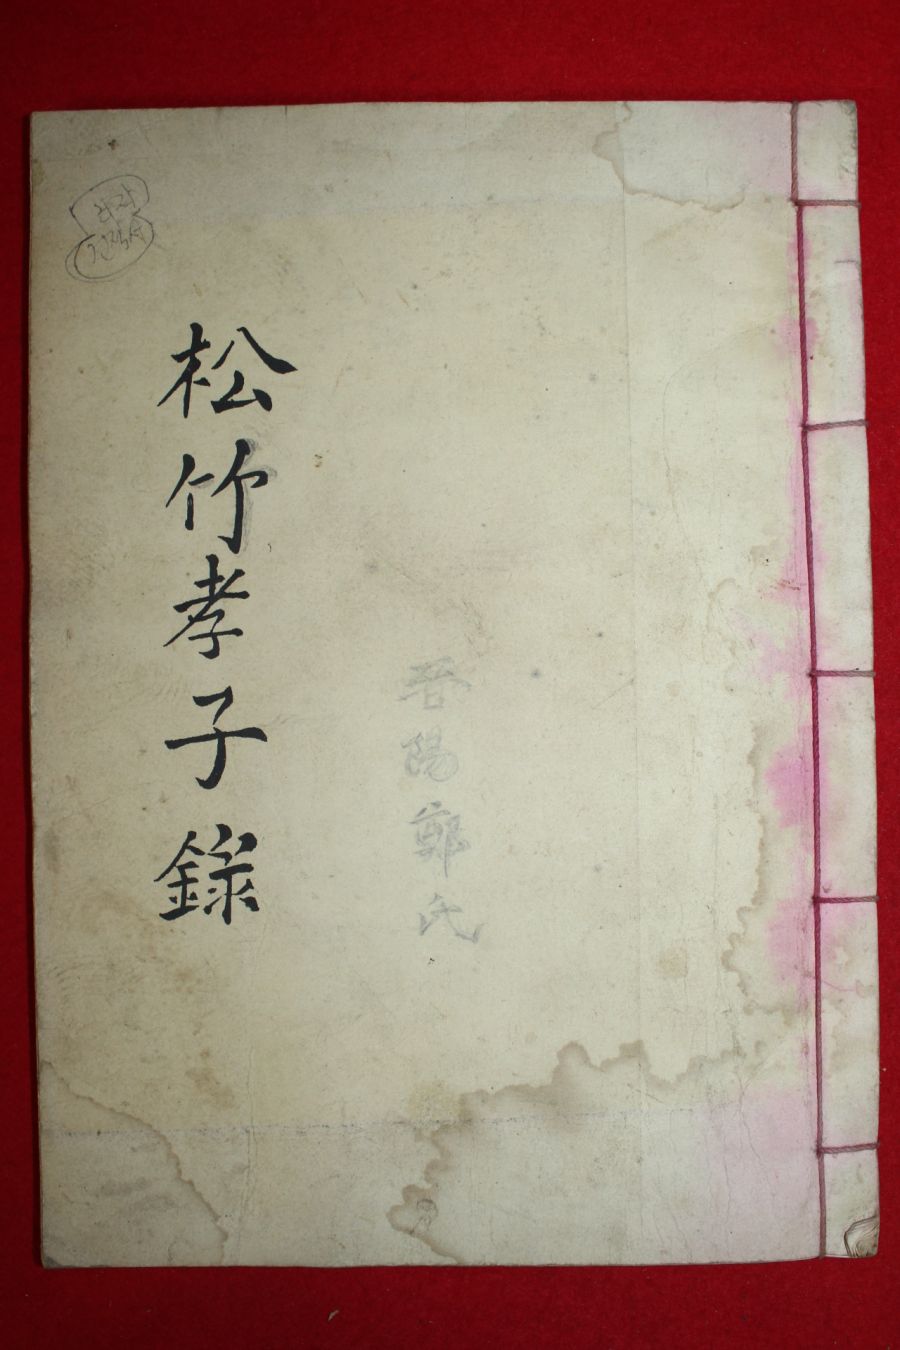 松竹孝子錄
晋陽鄭氏